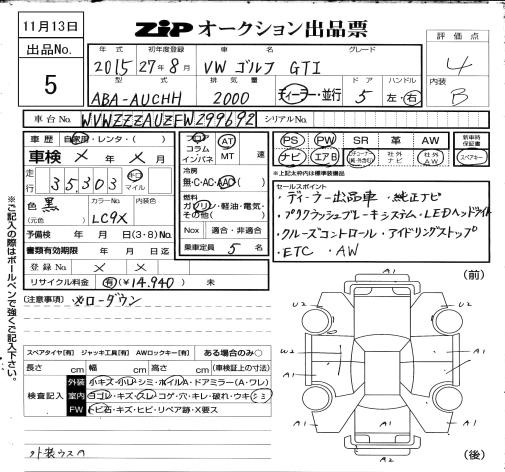 11月13日
ZIP オークション出品票
出品No.
5
評価点
4
内装
B
年式 初年度登録 車名 グレード
2015 27年8月 VW ゴルフ GTI
型式 排気量 ドア ハンドル
ABA-AUCHH 2000 ディーラー・並行 5 左・右
車台No. WVWZZZAUZFW299692 シリアルNo.
車歴 自家用・レンタ・( )
車検 × 年 × 月
走行 35303 km マイル
色 黒 カラーNo. LC9X 内装色
(元色)
予備検 年 月 日(3・8)No.
書類有効期限 年 月 日迄
登録No. × ×
リサイクル料金 有(¥14.940) 未
フロア コラム インパネ AT MT 速
冷房 無・C・AC・AAC
燃料 ガソリン・軽油・電気・その他( )
Nox 適合・非適合
乗車定員 5 名
PS PW SR 革 AW
ナビ エアB 社外ナビ 社外AW
新車時保証書 スペアキー
※上記太枠内は標準装備品
セールスポイント
・ディーラー出品車 ・純正ナビ
・プリクラッシュブレーキシステム・LEDヘッドライト
・クルーズコントロール・アイドリングストップ
・ETC ・AW
(注意事項) ※ローダウン
スペアタイヤ[有] ジャッキ工具[有] AWロックキー[有] ある場合のみ○
長さ cm 幅 cm 高さ cm (車検証上の寸法)
検査記入
外装 小キズ・小レ・シミ・ホイルA・ドアミラー(A・ワレ)
室内 ヨゴレ・キズ・スレ・コゲ・穴・キレ・破れ・ウキ・シミ
FW トビ石・キズ・ヒビ・リペア跡・X要ス
外装ウスA
※ご記入の際はボールペンで強くご記入下さい。
(前)
A1
U2 U2
W2 A1
A1 A1
A1
A1 A1
A2
(後)